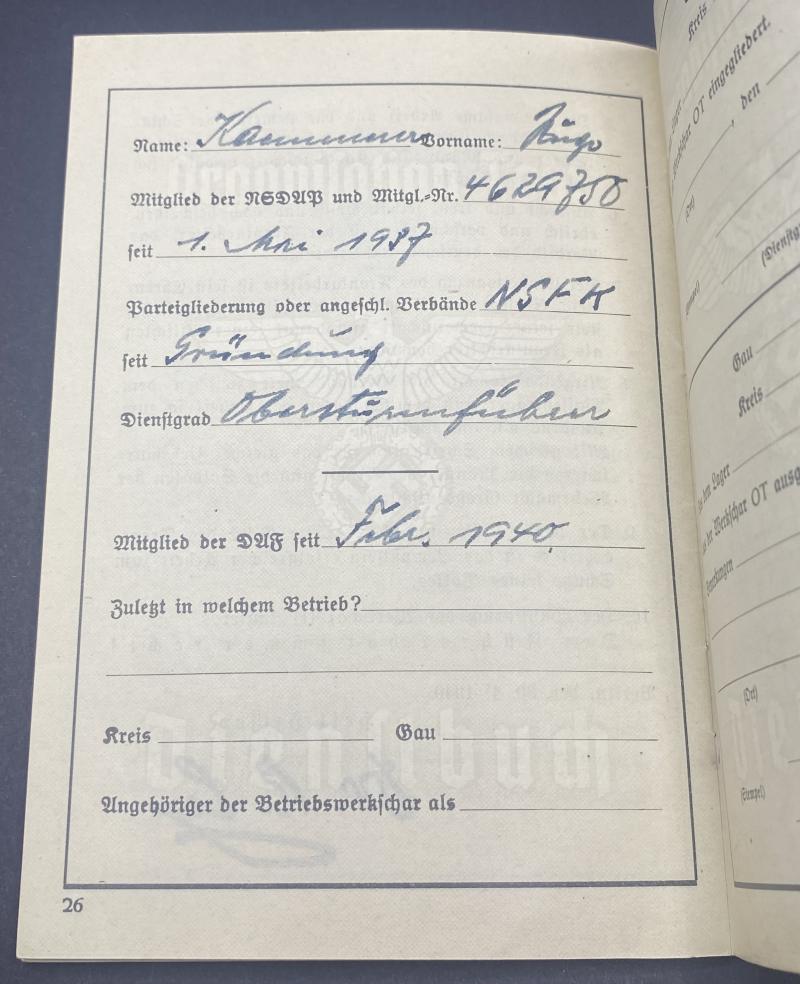 Name: Kaemmerer Vorname: Hugo
Mitglied der NSDAP und Mitgl.-Nr. 4629750
seit 1. Mai 1937
Parteigliederung oder angeschl. Verbände NSFK
seit Gründung
Dienstgrad Obersturmführer
Mitglied der DAF seit Febr. 1940
Zuletzt in welchem Betrieb?
Kreis Gau
Angehöriger der Betriebswerkschar als
26
Kreis
OT eingegliedert.
, den
(Ort)
Gau
Kreis
Lager
der Werkschar OT ausg
(Ort)
(Stempel)